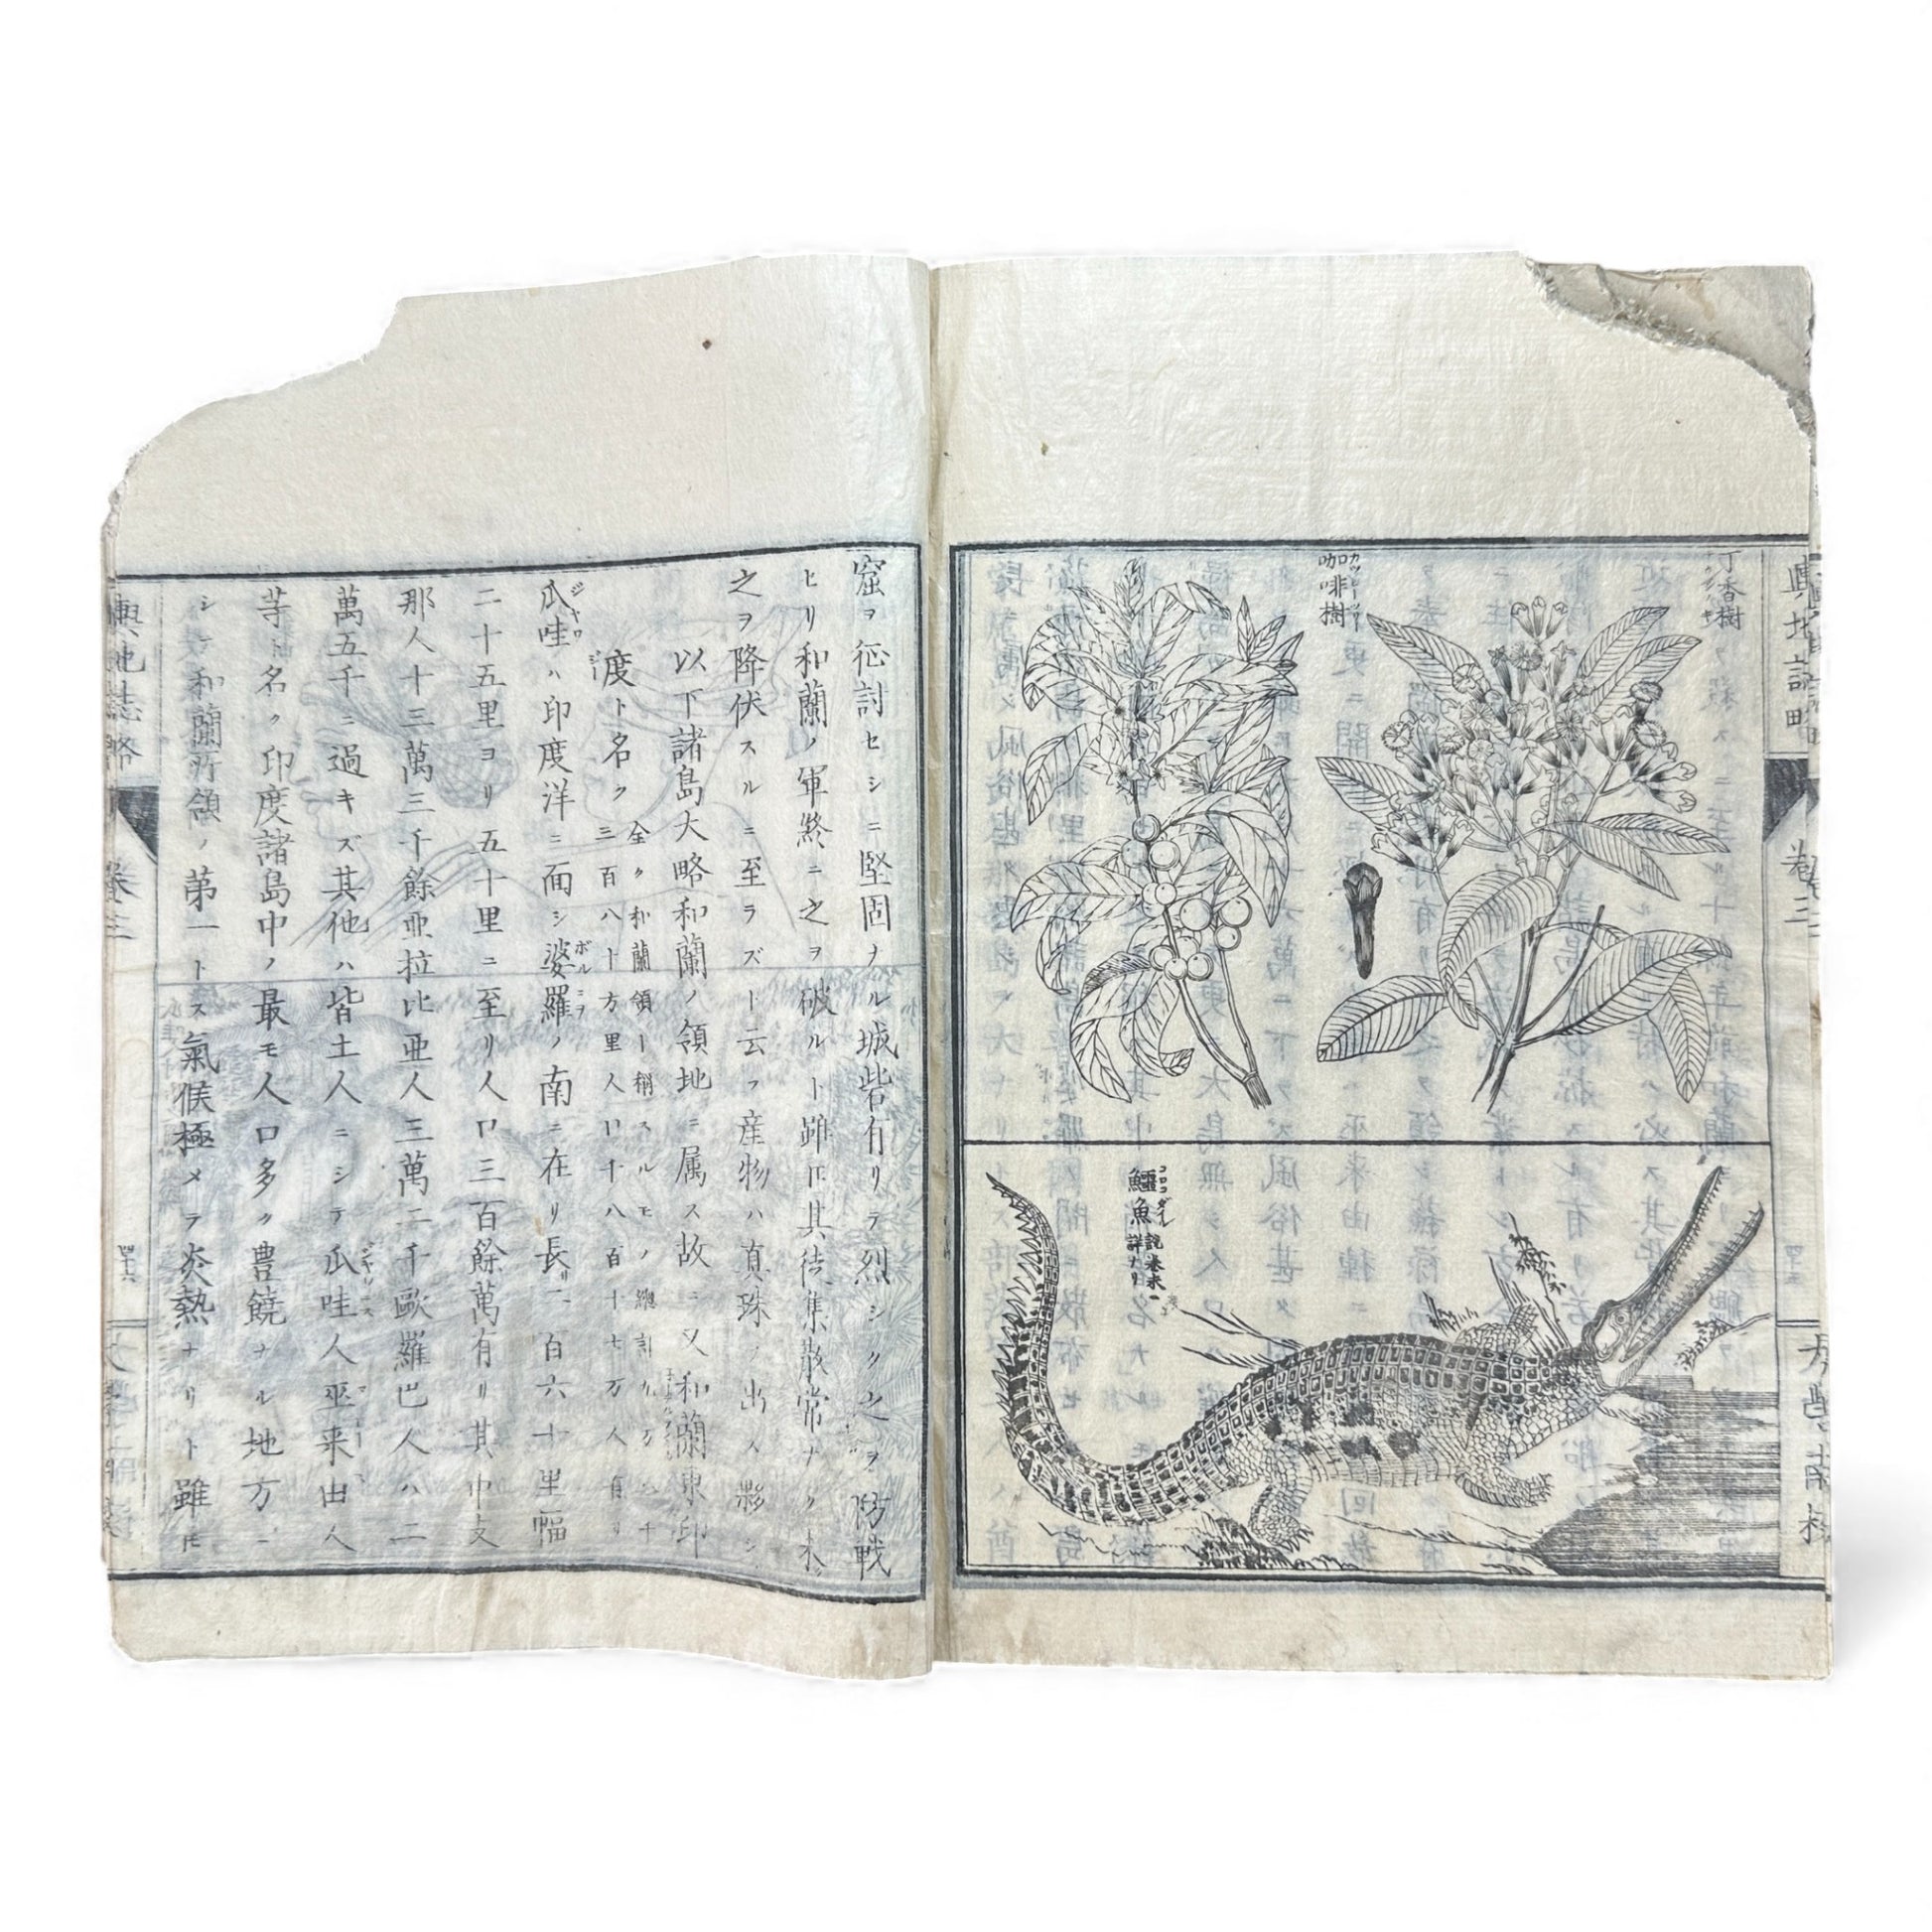 輿地誌略
卷三
大學南校
丁香樹
咖啡樹
カッヒーツリー
鱷魚
コロコダイル
説卷末ニ
詳ナリ
窟ヲ征討セシニ堅固ナル城砦有リテ烈シク之ヲ防戦
ヒリ和蘭ノ軍終ニ之ヲ破ルト雖𪜈其徒集散常ナク未ダ
之ヲ降伏スルニ至ラズト云フ産物ハ真珠ノ出ル夥シ
以下諸島大略和蘭ノ領地ニ属ス故ニ又和蘭東印
度ト名ク
全ク和蘭領ト稱スルモノ總計
三百八十方里人口十八百十七万人有リ
瓜哇ハ印度洋ニ面シ婆羅ノ南ニ在リ長二百六十里幅
二十五里ヨリ五十里ニ至リ人口三百餘萬有リ其中支
那人十三萬三千餘亜拉比亜人三萬二千歐羅巴人ハ二
萬五千ニ過キズ其他ハ皆土人ニシテ瓜哇人巫来由人
等ト名ク印度諸島中ノ最モ人口多ク豊饒ナル地方ニ
シテ和蘭所領ノ第一トス氣候極メテ炎熱ナリト雖𪜈
輿地誌略
卷三
四十六